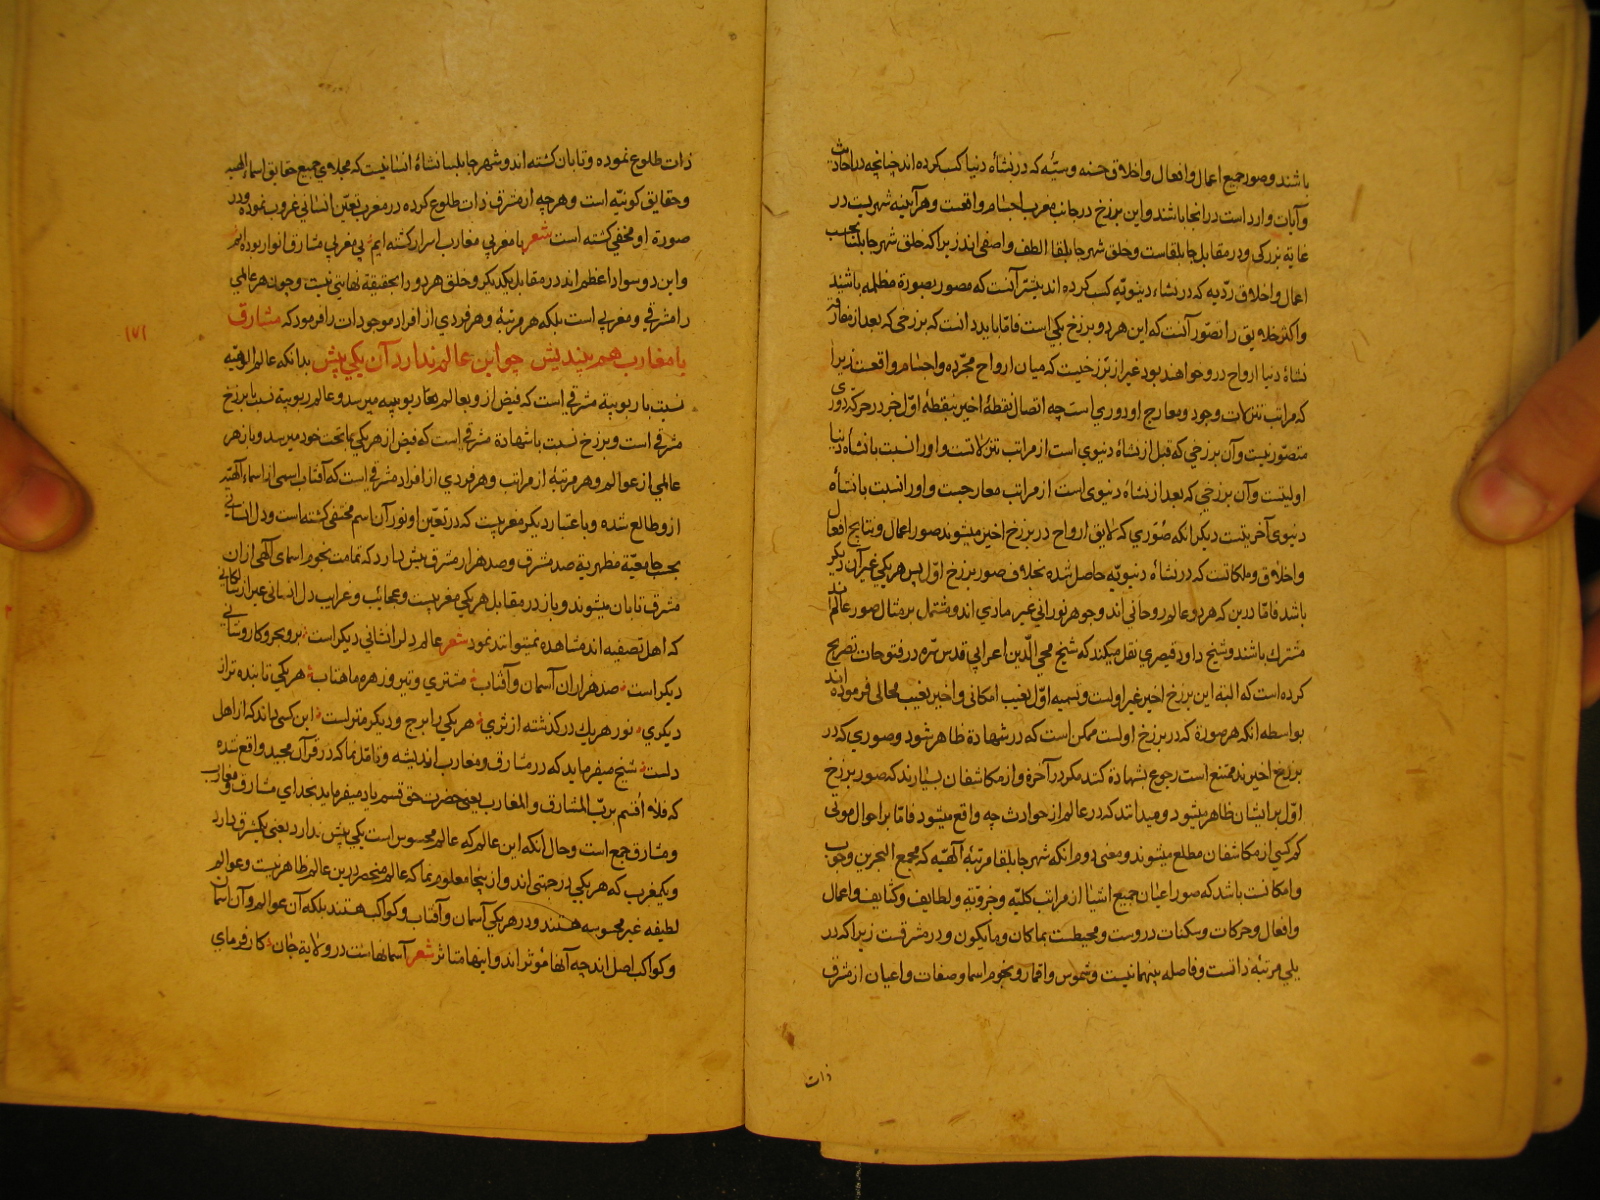 باشند و صور جمیع اعمال و افعال و اخلاق حسنه و سیّئه که در نشأه دنیا کسب کرده اند چنانچه در احادیث
و آیات وارد است در انجا باشند و این برزخ در جانب مغرب اجسام واقعست و هرآینه شهریست در
غایة بزرکی و در مقابل جابلقاست و خلق شهر جابلقا الطف و اصفی اند زیرا که خلق شهر جابلسا بحسب
اعمال و اخلاق ردّیه که در نشاء دنیویّه کسب کرده اند بیشتر آنست که مصور بصورة مظلمه باشند
و اکثر خلایق را تصوّر آنست که این هر دو برزخ یکی است فامّا باید دانست که برزخی که بعد از مفارقت
نشاة دنیا ارواح در و خواهند بود غیر از برزخیست که میان ارواح مجرّده و اجسام واقعست زیرا
که مراتب تنزلات وجود و معارج او دوری است چه اتصال نقطهٔ اخیر بنقطهٔ اوّل خبر در حرکه دوری
متصوّر نیست و آن برزخی که قبل از نشاهٔ دنیوی است از مراتب تنزلاتست و او را نسبت با نشاهٔ دنیا
اولیتست و آن برزخی که بعد از نشاهٔ دنیوی است از مراتب معارجست و او را نسبت با نشأه
دنیوی آخریتست دیکر انکه صوری که لایق ارواح در برزخ اخیر میشوند صور اعمال و نتایج افعال
و اخلاق و ملکاتست که در نشاه دنیویّه حاصل شده بخلاف صور برزخ اوّل پس هر یکی غیر آن دیکر
باشد فامّا درین که هر دو عالم روحانی اند و جوهر نورانی غیر مادی اند و مشتمل بر مثال صور عالمند
مشترک باشند و شیخ داود قیصری نقل میکند که شیخ محی الدّین اعرابی قدس سرّه در فتوحات تصریح
کرده است که البته این برزخ اخیر غیر اولست و تسمیه اوّل بغیب امکانی و اخیر بغیب محالی فرموده اند
بواسطه انکه هر صورة که در برزخ اولست ممکن است که در شهادة ظاهر شود و صوری که در
برزخ اخیرند ممتنع است رجوع بشهادة کنند مکر در آخرة و از مکاشفان بسیارند که صور برزخ
اوّل بر ایشان ظاهر میشود و میدانند که در عالم از حوادث چه واقع میشود فامّا بر احوال موتی
کم کسی از مکاشفان مطلع میشوند و معنی دوم انکه شهر جابلقا مرتبهٔ آلهیّه که مجمع البحرین وجوب
و امکانست باشد که صور اعیان جمیع اشیا از مراتب کلیّه و جزویّه و لطایف و کثایف و اعمال
و افعال و حرکات و سکنات دروست و محیطست بما کان و ما یکون و در مشرقست زیرا که در
یلی مرتبهٔ ذاتست و فاصله بینهما نیست و شموس و اقمار و نجوم اسما و صفات و اعیان از مشرق
ذات
ذات طلوع نموده و تابان کشته اند و شهر جابلسا نشاهٔ انسانیست که مجلای جمیع حقایق اسماء الهیه
و حقایق کونیّه است و هرچه از مشرق ذات طلوع کرده در مغرب تعیّن انسانی غروب نموده و در
صورة او مخفی کشته است شعر با مغربی مغارب اسرار کشته ایم بی مغربی مشارق انوار بوده ایم
و این دو سواد اعظم اند در مقابل یکدیکر و خلق هر دو را بحقیقة نهایتی نیست و چون هر عالمی
را مشرقی و مغربی است بلکه هر مرتبهٔ و هر فردی از افراد موجودات را فرمود که مشارق
با مغارب هم بیندیش چو این عالم ندارد آن یکی بیش بدانکه عالم الوهیّه
نسبت با ربوبیة مشرقی است که فیض ازو بعالم ربوبیه میرسد و عالم ربوبیة نسبت با برزخ
مشرقی است و برزخ نسبت با شهادة مشرقی است که فیض از هر یکی بما تحت خود میرسد و باز هر
عالمی از عوالم و هر مرتبهٔ از مراتب و هر فردی از افراد مشرقی است که آفتاب اسمی از اسماء آلهیّه
ازو طالع شده و باعتبار دیکر مغربیست که در تعیّن او نور آن اسم مختفی کشته است و دل انسانی
بحسب جامعیّة مظهریة صد مشرق و صد هزار مشرق بیش دارد که تمامت نجوم اسمای آلهی از ان
مشرق تابان میشوند و باز در مقابل هر یکی مغربیست و عجائب و غرایب دل انسانی غیر از سالکانی
که اهل تصفیه اند مشاهده نمیتوانند نمود شعر عالم دل را نشانی دیکر است بر و بحر و کار و شانی
دیکر است صد هزاران آسمان و آفتاب مشتری و تیر و زهره ماهتاب هر یکی تابنده تر از
دیکری نور هر یک در کذشته از ثری هر یکی را برج و دیکر منزلست این کسی داند که از اهل
دلست شیخ میفرماید که در مشارق و مغارب اندیشه و تامّل نما که در قرآن مجید واقع شده
که فلا اُقسم بربّ المشارق و المغارب یعنی حضرت حق قسم یاد میفرماید بخدای مشارق و مغارب
و مشارق جمع است و حال انکه این عالم که عالم محسوس است یکی بیش ندارد یعنی یکمشرق دارد
و یکمغرب که هر یکی در جهتی اند و از ینجا معلوم نما که عالم منحصر درین عالم ظاهر نیست و عوالم
لطیفه غیر محسوسه هستند و در هر یکی آسمان و آفتاب و کواکب هستند بلکه آن عوالم و آن آسمان
و کواکب اصل اند چه آنها مُوثر اند و اینها متاثر شعر آسمانهاست در ولایة جان کار فرمای
۱۷۱